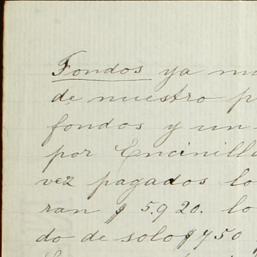 Fondos ya
de nuestro
fondos y un
por Encinill
vez pagados lo
ran $ 5.920. lo
do de solo $ 450